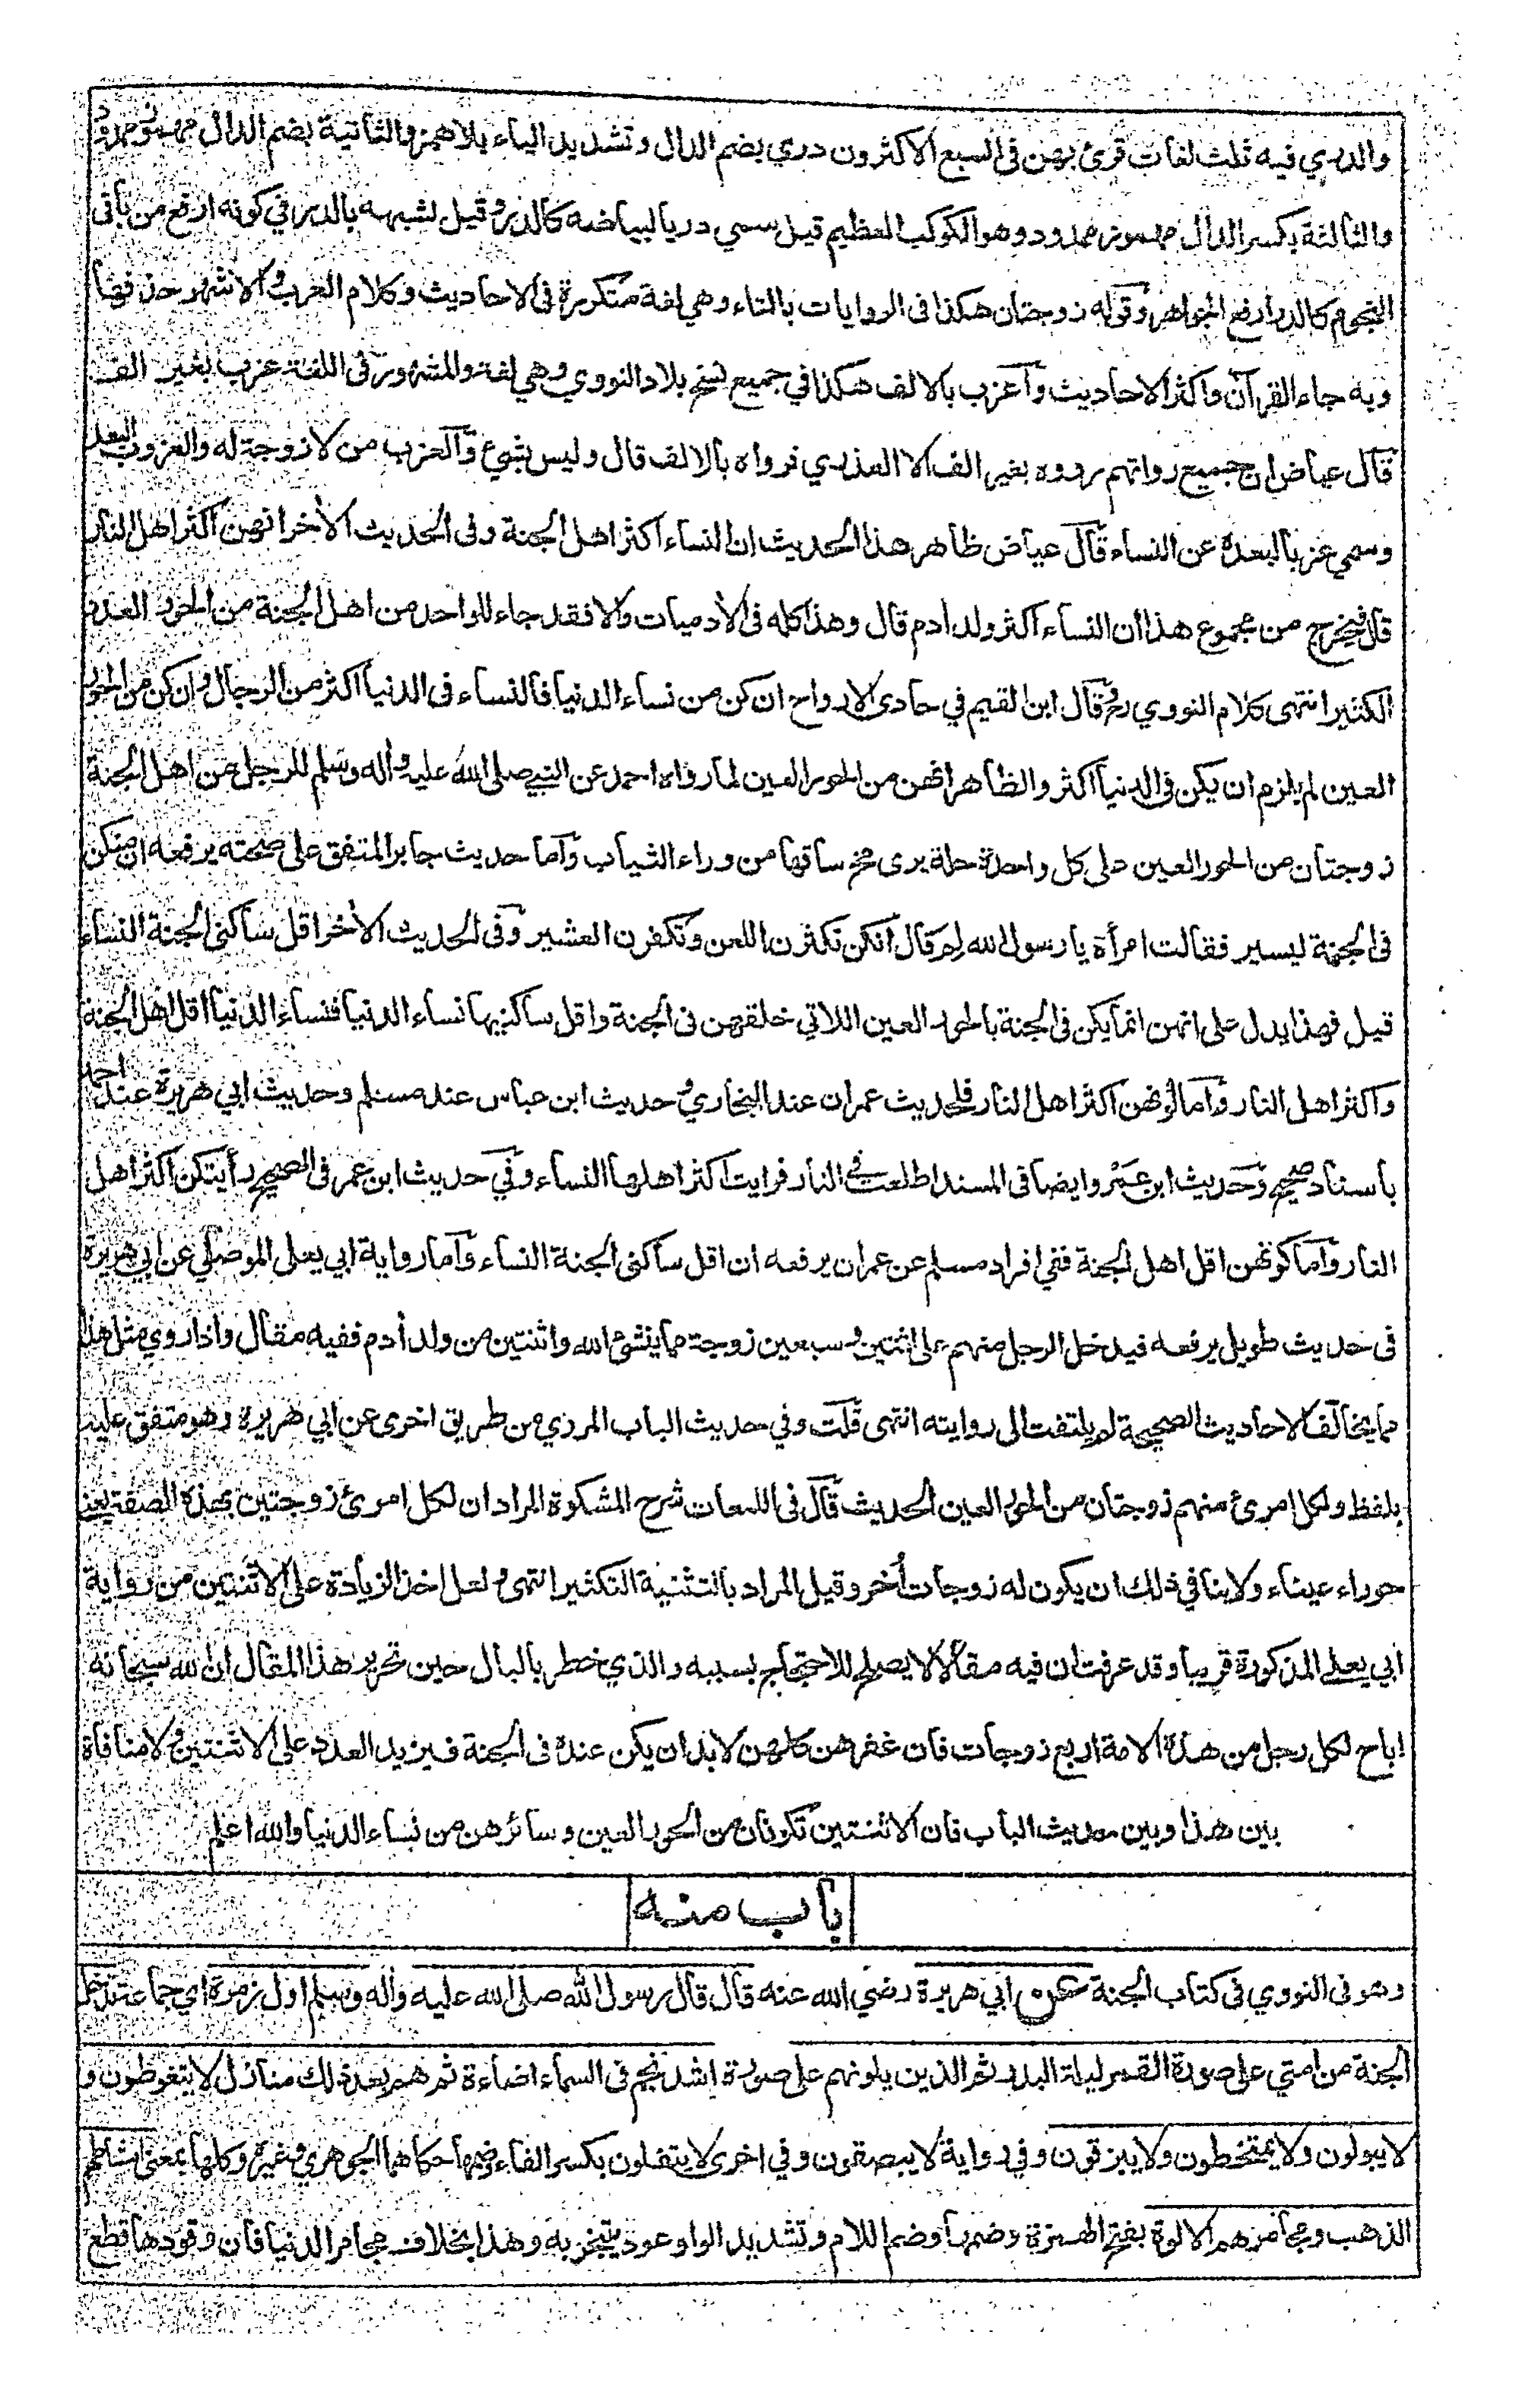 والدري فيه ثلث لغات قرئ بهن فى السبع الاكثرون دري بضم الدال وتشديد الياء بلاهمز والثانية بضم الدال مهموز ممدود
والثالثة بكسر الدال مهموز ممدود وهو الكوكب العظيم قيل سمي دريا لبياضه كالدر وقيل لشبهه بالدر في كونه ارفع من باقى
النجوم كالدر ارفع الجواهر وقوله زوجتان هكذا فى الروايات بالتاء وهي لغة متكررة فى الاحاديث وكلام العرب والاشهر حذفها
وبه جاء القرآن واكثر الاحاديث وآعزب بالالف هكذا في جميع نسخ بلاد النووي وهي لغة والمشهور فى اللغة عزب بغير الف
قال عياض ان جميع رواتهم رووه بغير الف الا العذري فرواه بالالف قال وليس بشيء والعزب من لا زوجة له والعزوب البعد
وسمي عزبا لبعده عن النساء قال عياض ظاهر هذا الحديث ان النساء اكثر اهل الجنة وفى الحديث الأخر انهن اكثر اهل النار
قال فيخرج من مجموع هذا ان النساء اكثر ولد آدم قال وهذا كله فى الأدميات والا فقد جاء للواحد من اهل الجنة من الحور العدد
الكثير انتهى كلام النووي رح وقال ابن القيم في حادى الارواح ان كن من نساء الدنيا فالنساء فى الدنيا اكثر من الرجال وان كن من الحور
العين لم يلزم ان يكن فى الدنيا اكثر والظاهر انهن من الحور العين لما رواه احمد عن النبي صلى الله عليه وأله وسلم للرجل من اهل الجنة
زوجتان من الحور العين على كل واحدة حلة يرى مخ ساقها من وراء الثياب وآما حديث جابر المتفق على صحته يرفعه ان منكن
فى الجنة ليسير فقالت امرأة يا رسول الله لم قال انكن تكثرن اللعن وتكفرن العشير وفى الحديث الأخر اقل ساكنى الجنة النساء
قيل فهذا يدل على انهن انما يكن فى الجنة بالحور العين اللاتي خلقهن فى الجنة واقل ساكنيها نساء الدنيا فنساء الدنيا اقل اهل الجنة
واكثر اهل النار وآما كونهن اكثر اهل النار فلحديث عمران عند البخاري وحديث ابن عباس عند مسلم وحديث ابي هريرة عند احمد
باسناد صحيح وحديث ابن عمرو ايضا فى المسند اطلعت في النار فرايت اكثر اهلها النساء وفي حديث ابن عمر فى الصحيح رأيتكن اكثر اهل
النار وآما كونهن اقل اهل الجنة ففي افراد مسلم عن عمران يرفعه ان اقل ساكنى الجنة النساء وآما رواية ابي يعلى الموصلي عن ابي هريرة
فى حديث طويل يرفعه فيدخل الرجل منهم على اثنتين وسبعين زوجة مما ينشئ الله واثنتين من ولد أدم ففيه مقال واذا روي مثل هذا
مما يخالف الاحاديث الصحيحة لم يلتفت الى روايته انتهى قلت وفي حديث الباب المروي من طريق اخرى عن ابي هريرة وهو متفق عليه
بلفظ ولكل امرئ منهم زوجتان من الحور العين الحديث قال فى اللمعات شرح المشكوة المراد ان لكل امرئ زوجتين بهذه الصفة يعنى
حوراء عيناء ولاينافي ذلك ان يكون له زوجات أخر وقيل المراد بالتثنية التكثير انتهى ولعل اخذ الزيادة على الاثنتين من رواية
ابي يعلى المذكورة قريبا وقد عرفت ان فيه مقالا لايصلح للاحتجاج بسببه والذي خطر بالبال حين تحرير هذا المقال ان لله سبحانه
اباح لكل رجل من هذه الامة اربع زوجات فان غفرهن كلهن لابد ان يكن عنده فى الجنة فيزيد العدد على الاثنتين ولا منافاة
بين هذا وبين حديث الباب فان الاثنتين تكونان من الحور العين وسائرهن من نساء الدنيا والله اعلم
باب منه
وهو فى النووي فى كتاب الجنة عن ابي هريرة رضي الله عنه قال قال رسول الله صلى الله عليه وأله وسلم اول زمرة اي جماعة تدخل
الجنة من امتي على صورة القمر ليلة البدر ثم الذين يلونهم على صورة اشد نجم فى السماء اضاءة ثم هم بعد ذلك منازل لايتغوطون و
لايبولون ولايمتخطون ولايبزقون وفي رواية لايبصقون وفي اخرى لايتفلون بكسر الفاء وضمها حكاهما الجوهري وغيره وكلها بمعنى امشاطهم
الذهب ومجامرهم الالوة بفتح الهمزة وضمها وضم اللام وتشديد الواو عود يتبخر به وهذا بخلاف مجامر الدنيا فان وقودها قطع